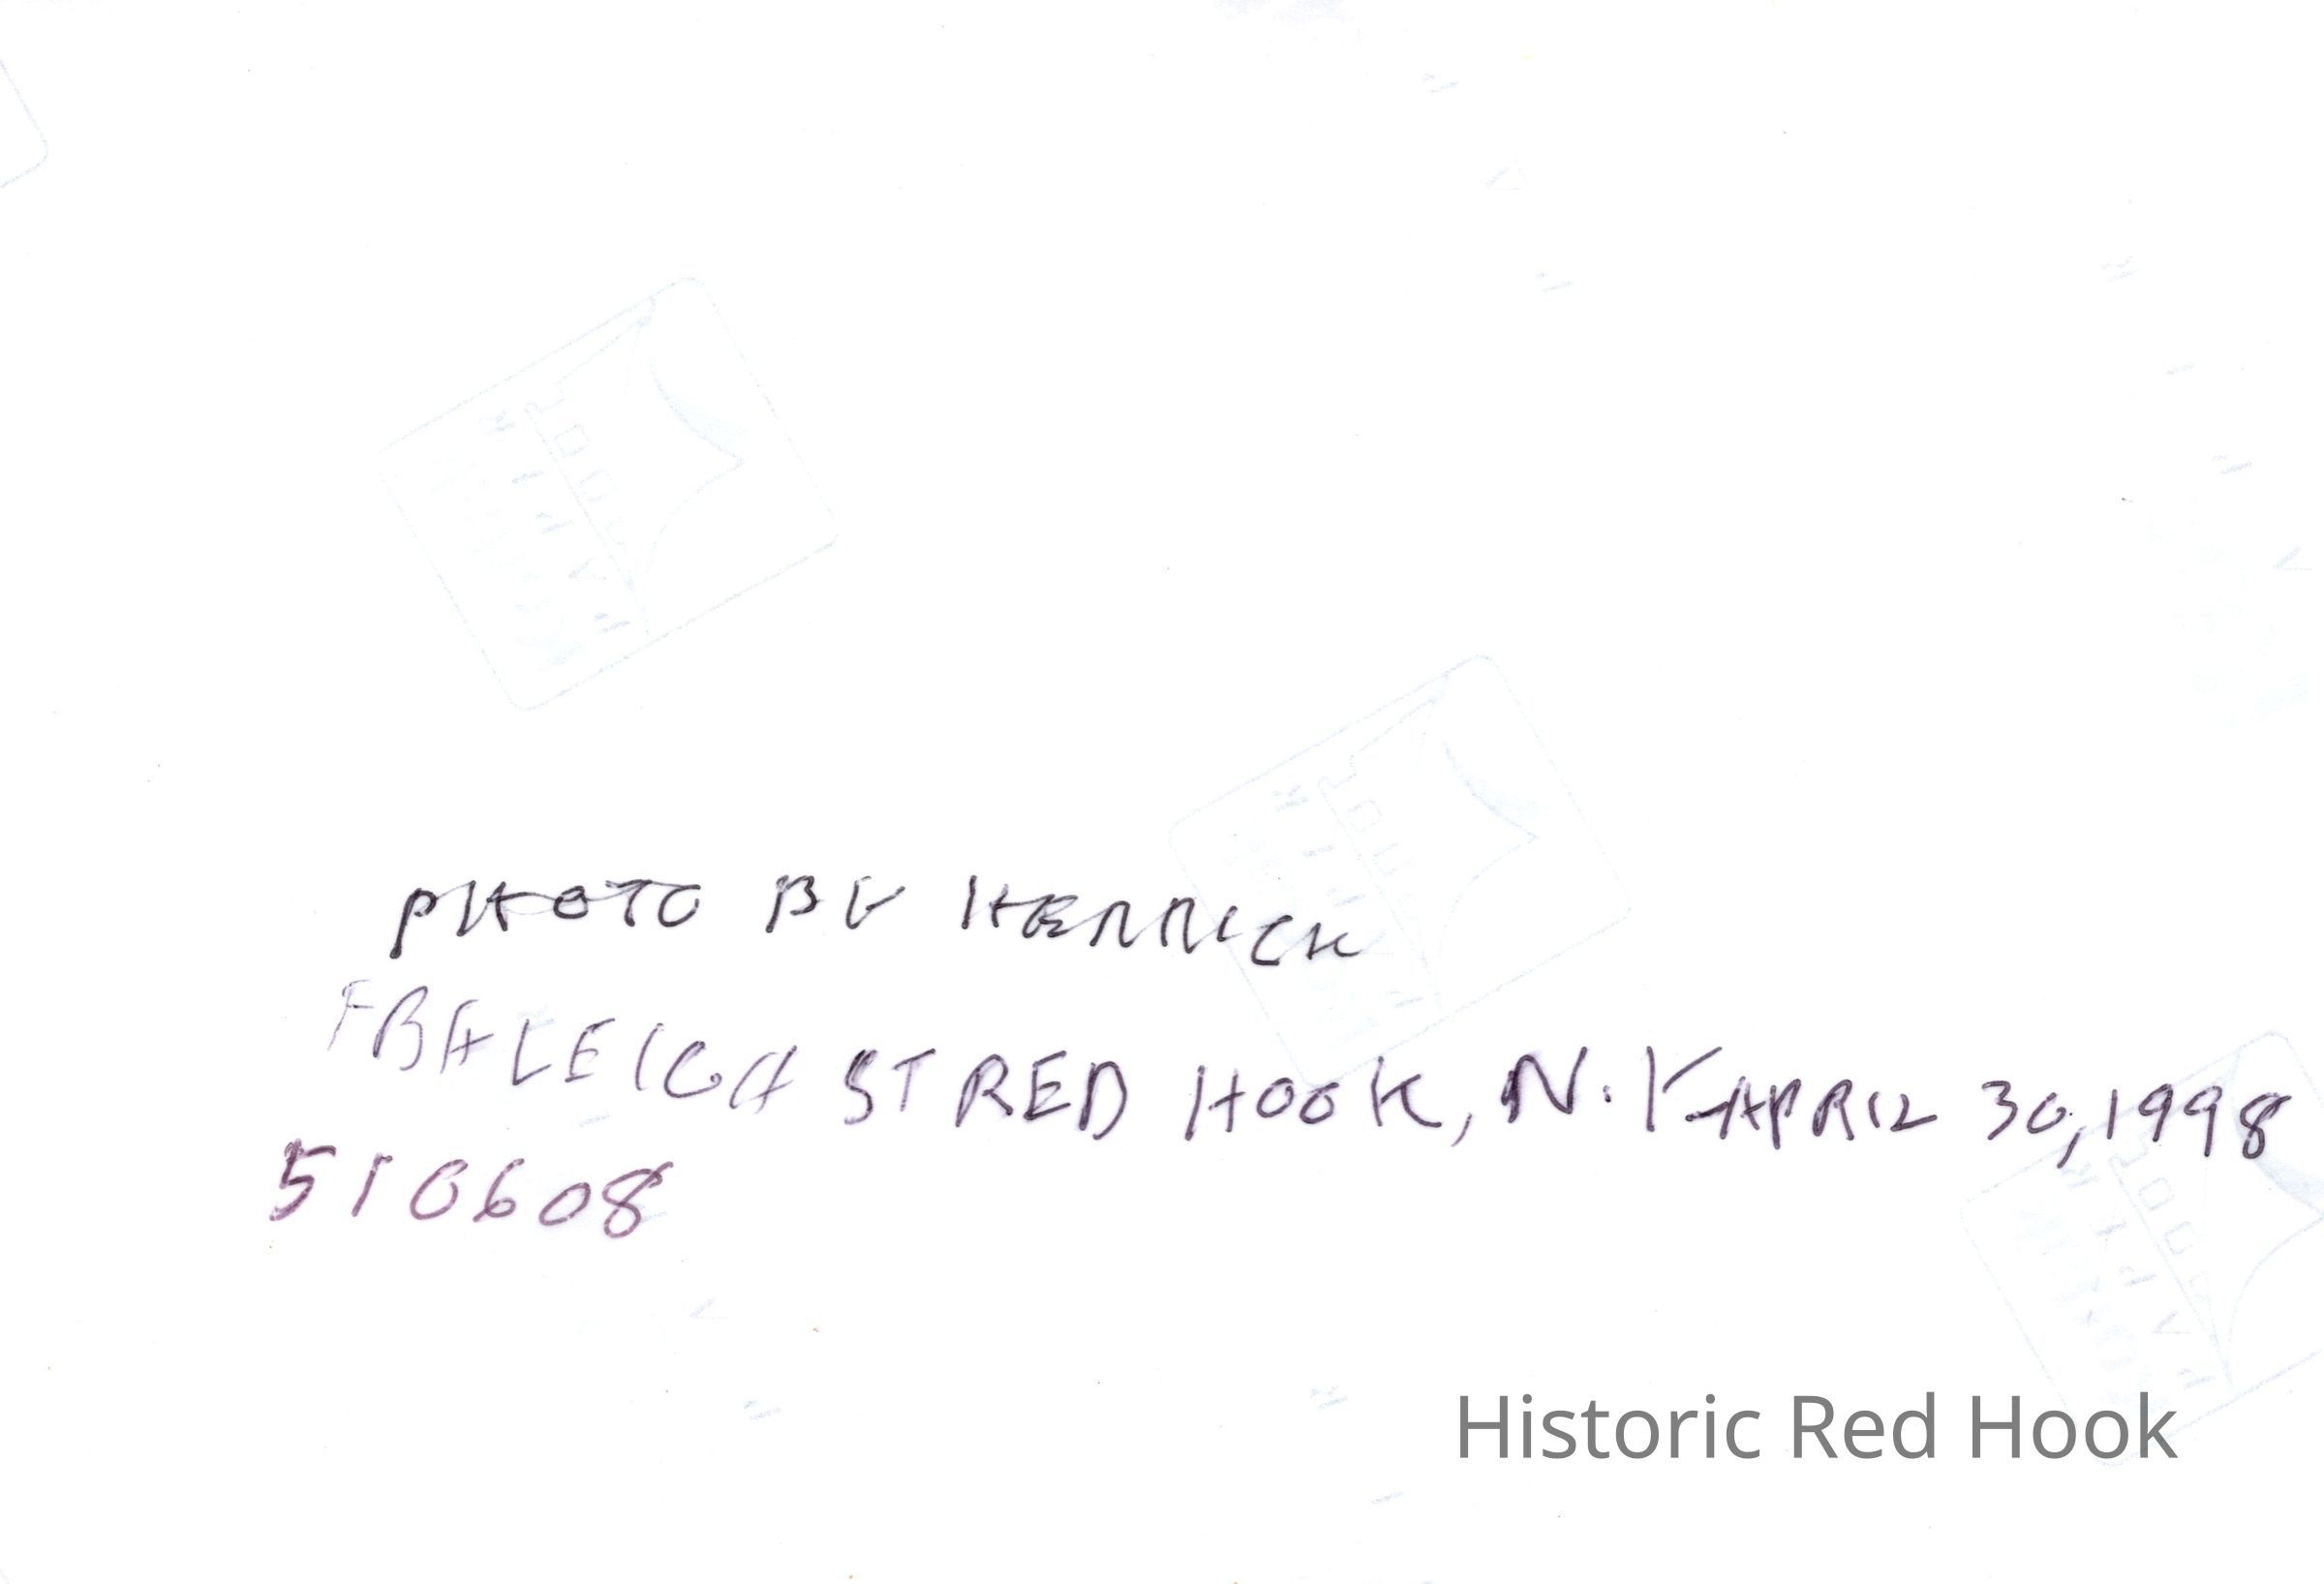 PHOTO BY HERRICK
FRALEIGH ST RED HOOK, N.Y APRIL 30, 1998
510608
Historic Red Hook